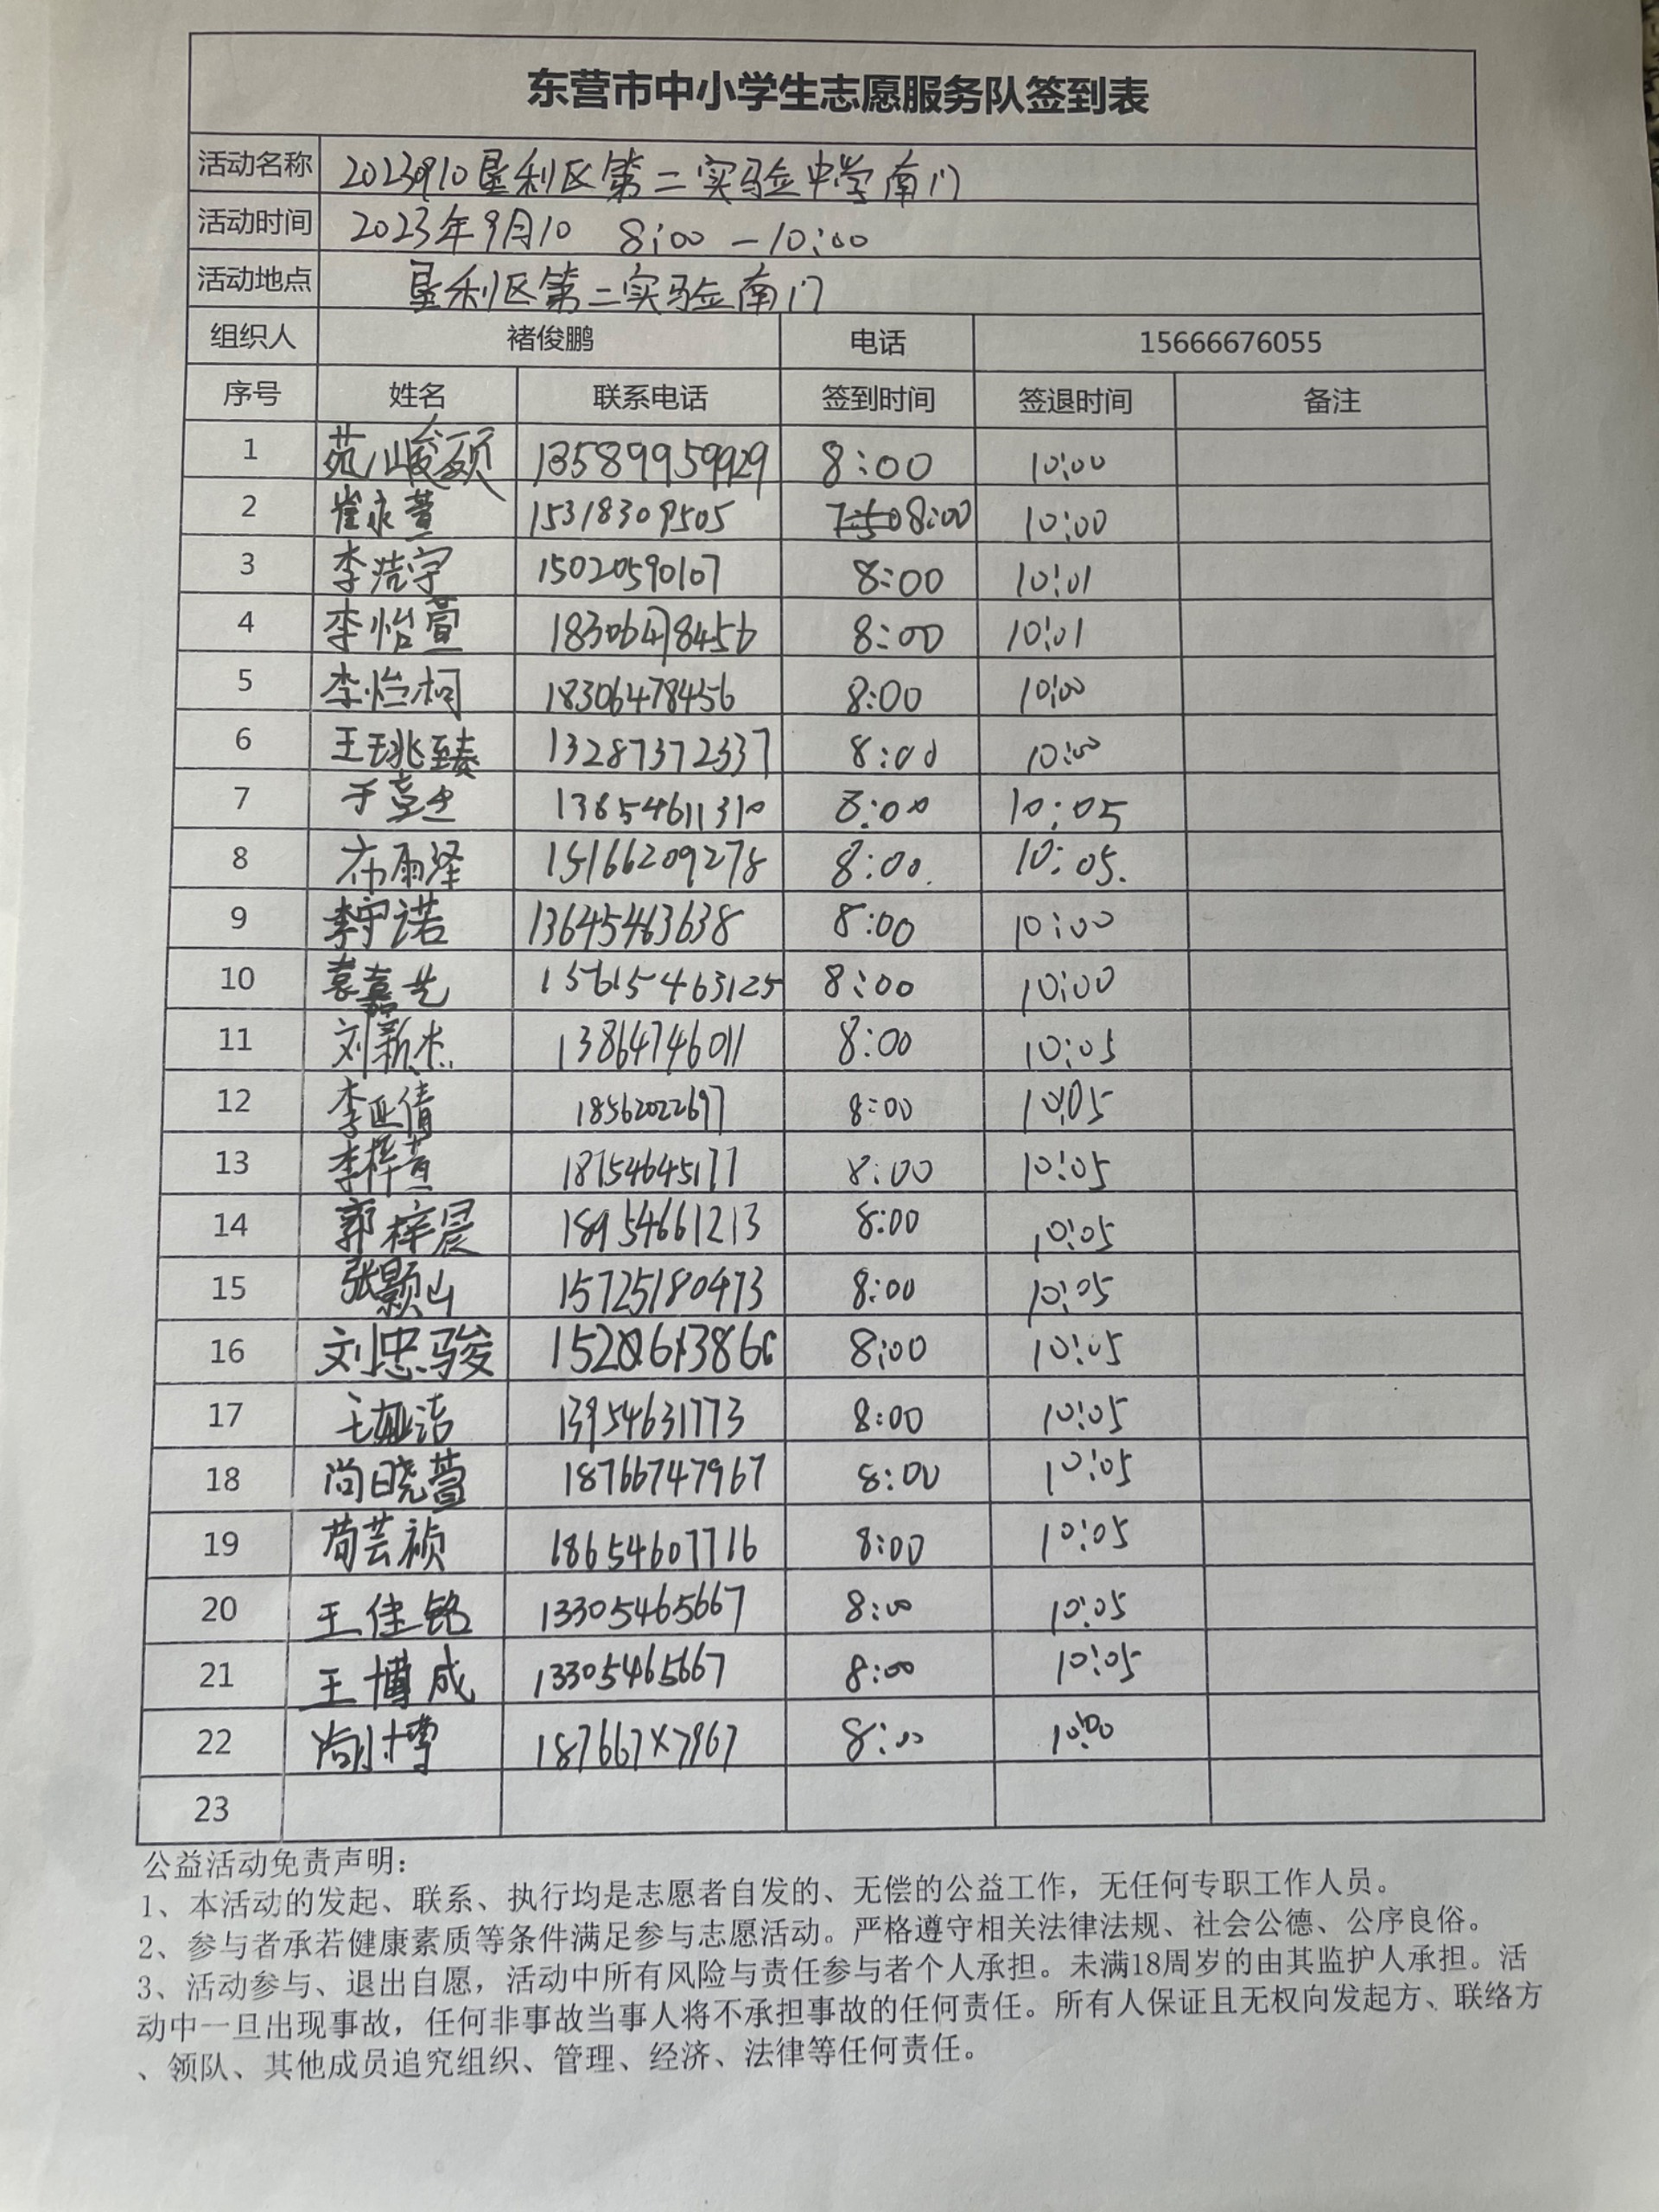 东营市中小学生志愿服务队签到表
活动名称 20230910垦利区第二实验中学南门
活动时间 2023年9月10 8:00 — 10:00
活动地点 垦利区第二实验南门
组织人 褚俊鹏 电话 15666676055
序号 姓名 联系电话 签到时间 签退时间 备注
1 苑峻硕 13589959929 8:00 10:00
2 崔永萱 15318309505 8:00 10:00
3 李浩宇 15020590107 8:00 10:01
4 李怡萱 18306478456 8:00 10:01
5 李怡桐 18306478456 8:00 10:00
6 王珧臻 13287372337 8:00 10:00
7 13854611310 8:00 10:05
8 布雨泽 15166209278 8:00. 10:05.
9 李宇诺 13645463638 8:00 10:00
10 袁嘉 8:00 10:00
11 刘新杰 13864746011 8:00 10:05
12 李亚倩 18562022697 8:00 10:05
13 李梓萱 18754645177 8:00 10:05
14 郭梓晨 18954661213 8:00 10:05
15 张颢山 15725180473 8:00 10:05
16 刘忠骏 8:00 10:05
17 13954631773 8:00 10:05
18 尚晓萱 18766747967 8:00 10:05
19 苟芸祯 18654607716 8:00 10:05
20 王佳铭 13305465667 8:00 10:05
21 王博成 13305465667 8:00 10:05
22 8:00 10:00
23
公益活动免责声明：
1、本活动的发起、联系、执行均是志愿者自发的、无偿的公益工作，无任何专职工作人员。
2、参与者承若健康素质等条件满足参与志愿活动。严格遵守相关法律法规、社会公德、公序良俗。
3、活动参与、退出自愿，活动中所有风险与责任参与者个人承担。未满18周岁的由其监护人承担。活
动中一旦出现事故，任何非事故当事人将不承担事故的任何责任。所有人保证且无权向发起方、联络方
、领队、其他成员追究组织、管理、经济、法律等任何责任。